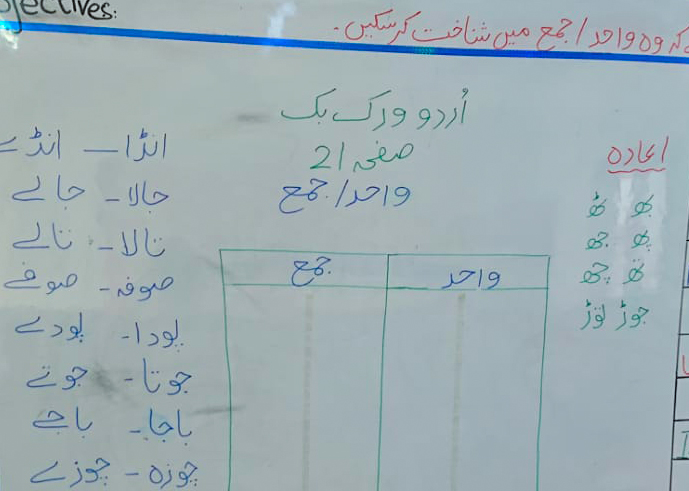 Objectives:
کہ وہ واحد / جمع میں شناخت کر سکیں۔
اُردو ورک بک
صفحہ 21
واحد/جمع
اعادہ
بھ تھ
پھ جھ
ٹھ چھ
جوڑ توڑ
واحد جمع
انڈا – انڈے
جالا - جالے
تالا - تالے
صوفہ - صوفے
پودا - پودے
جوتا - جوتے
باجا - باجے
چوزہ - چوزے